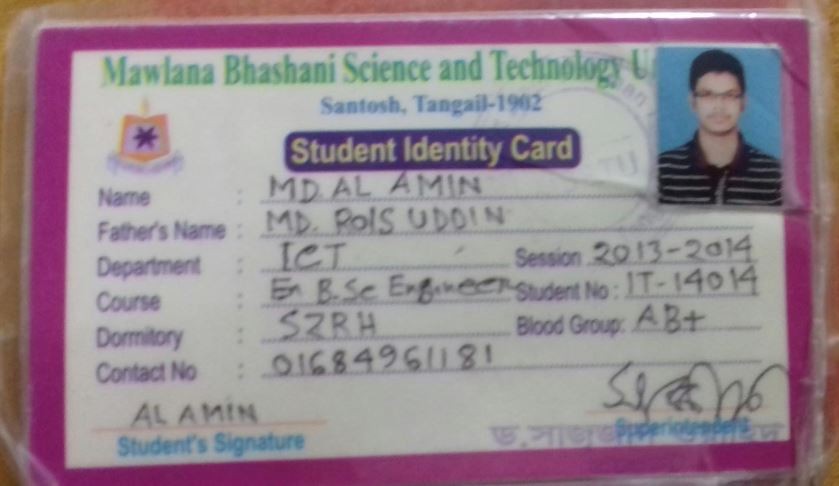 Mawlana Bhashani Science and Technology U
Santosh, Tangail-1902
Student Identity Card
Name : MD. AL AMIN
Father's Name : MD. ROIS UDDIN
Department : ICT Session 2013-2014
Course : En B.Sc Engineer Student No : IT-14014
Dormitory : SZRH Blood Group: AB+
Contact No : 01684961181
AL AMIN
Student's Signature Superintendent